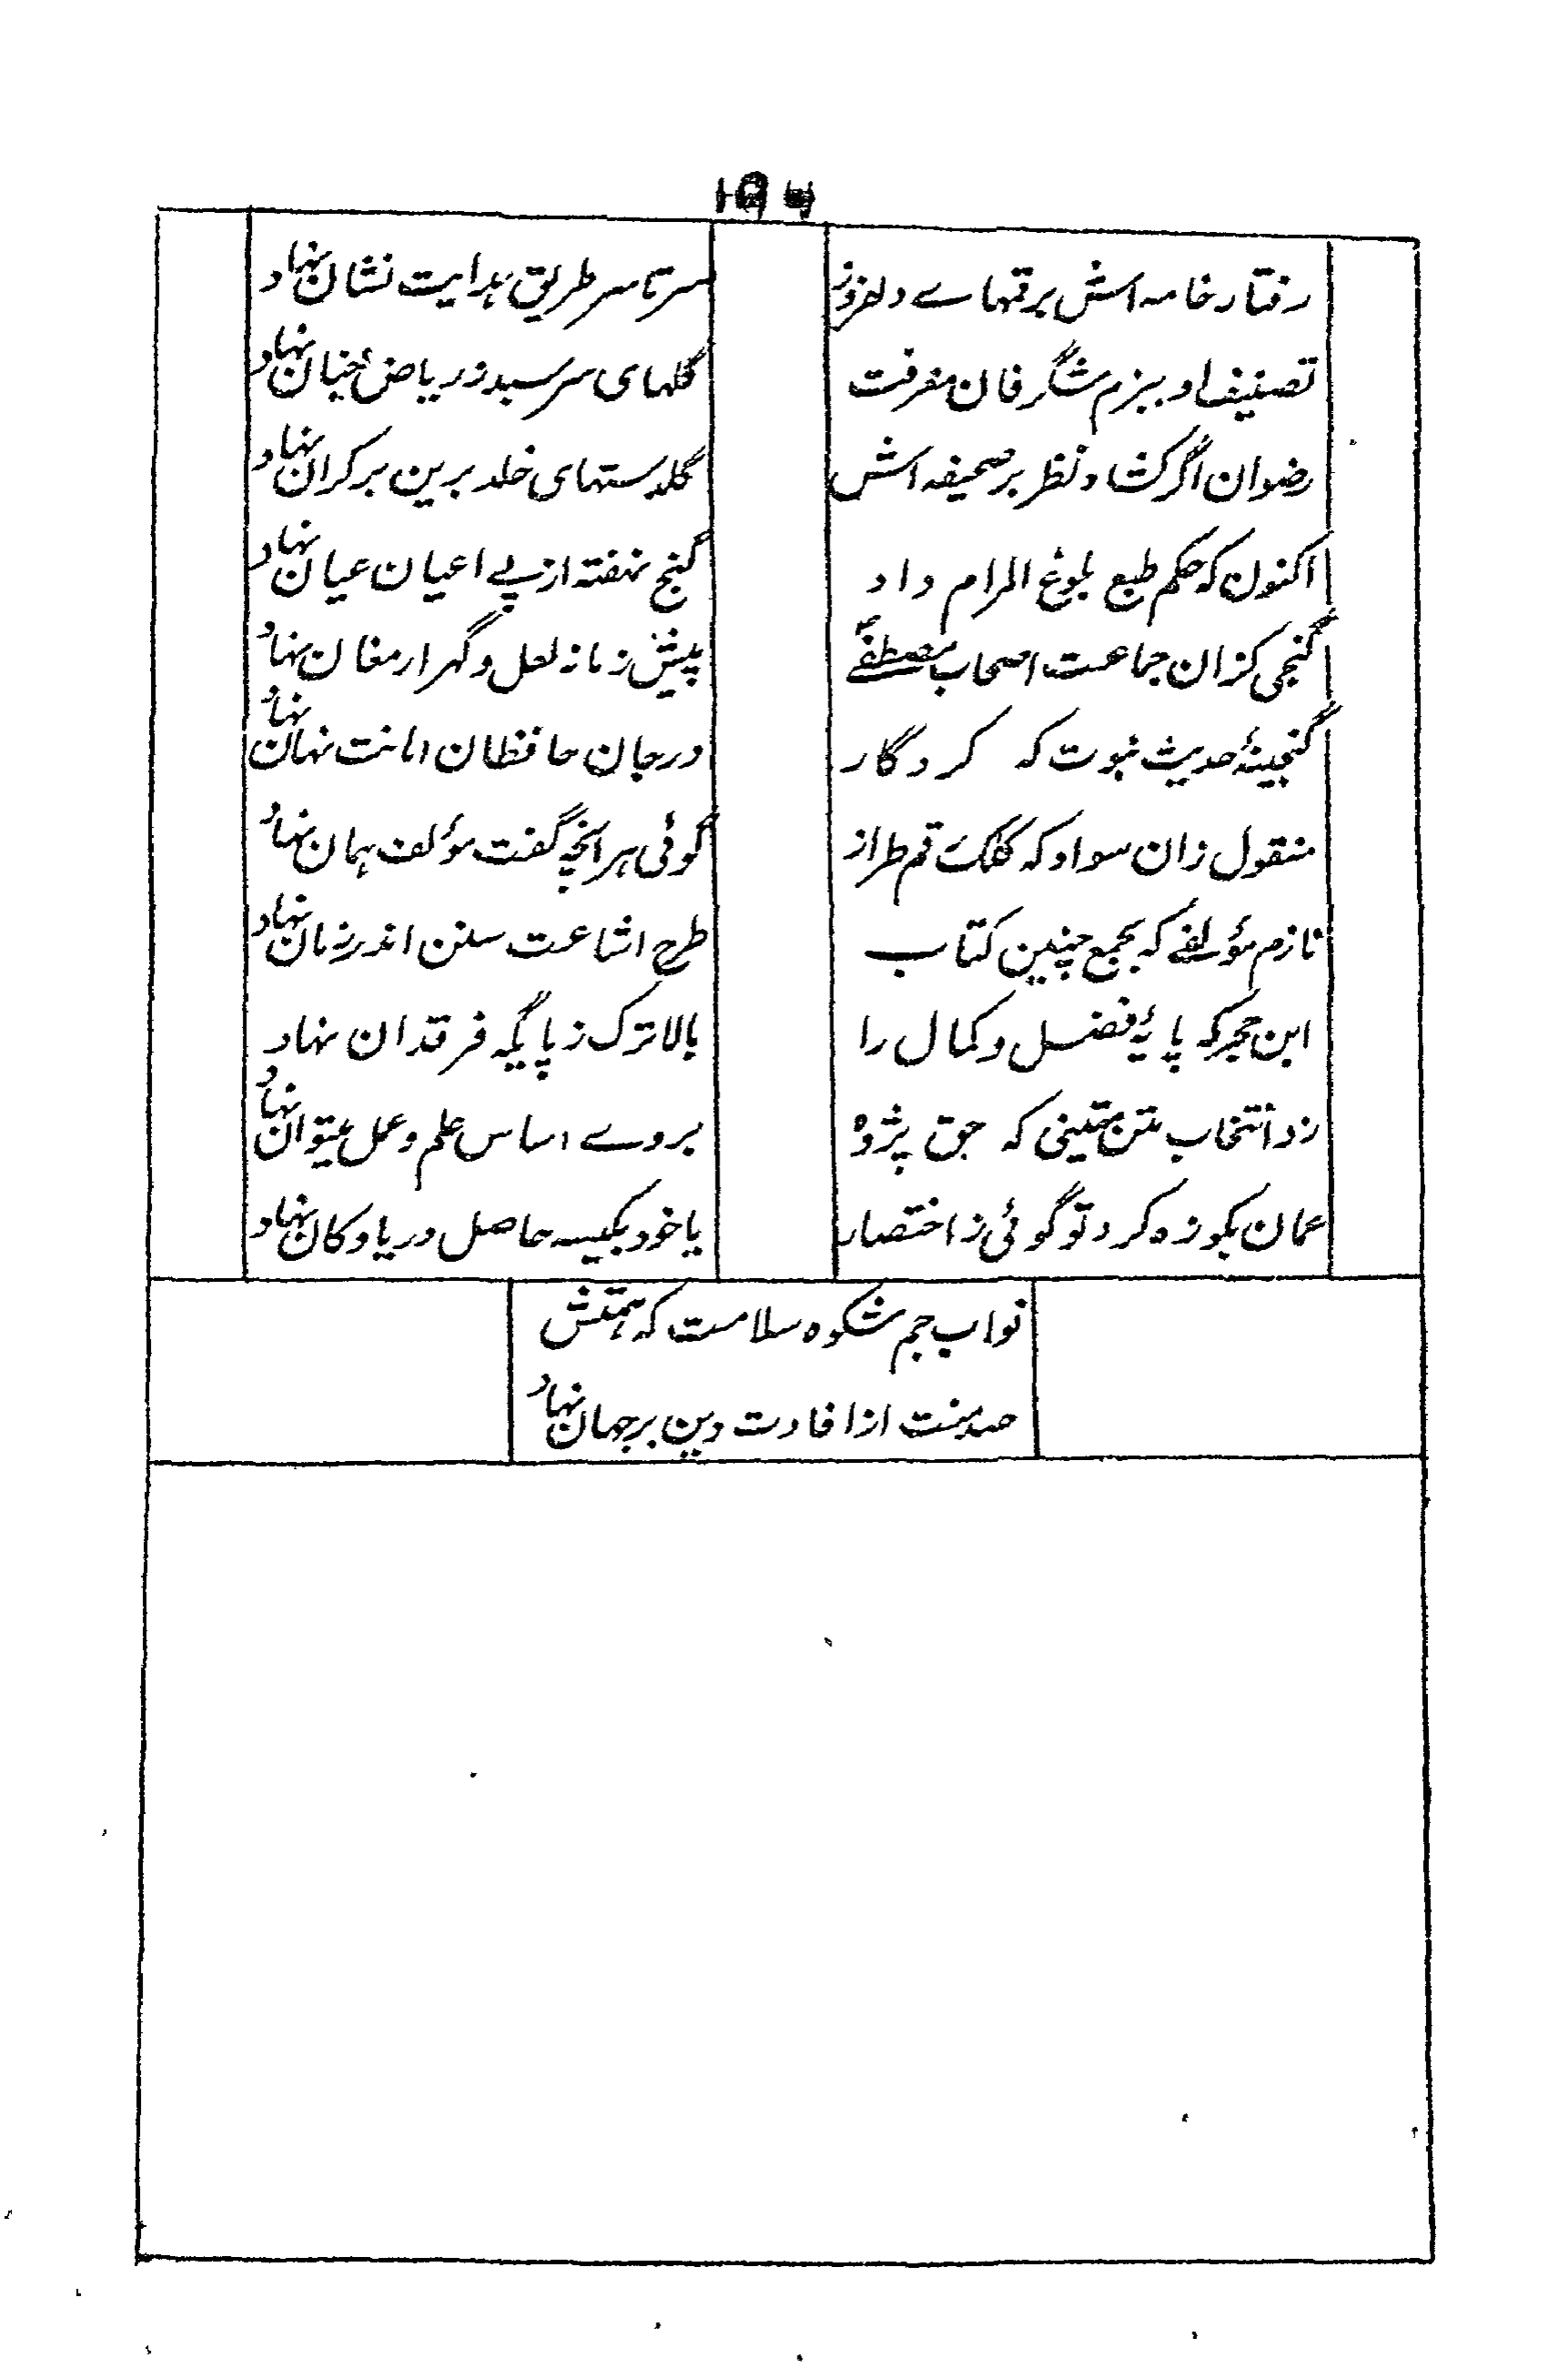 رفتار خامه اش برقمهاے دلفروز سرتاسر طریق ہدایت نشان نہاد
تصنیف او ببزم شگرفان معرفت گلہای سرسبد ز ریاض جنان نہاد
رضوان اگر کشاد نظر بر صحیفه اش گلدستہای خلد برین بر کران نہاد
اکنون که حکم طبع بلوغ المرام داد گنج نہفته از پے اعیان عیان نہاد
گنجی کزان جماعت اصحاب مصطفےٰ پیش زمانه لعل و گہر ارمغان نہاد
گنجینۂ حدیث نبوت که کردگار در جان حافظان امانت نہان نہاد
منقول زان سواد که کلک رقم طراز گوئی ہر انچه گفت مؤلف ہمان نہاد
نازم مؤلفے که بجمع چنین کتاب طرح اشاعت سنن اندر زمان نہاد
ابن حجر که پایۂ فضل و کمال را بالاترک ز پایگه فرقدان نہاد
زد انتخاب متن متینی که حق پژوه بروے اساس علم و عمل میتوان نہاد
عمان بکوزه کرد تو گوئی ز اختصار یا خود بکیسه حاصل دریا و کان نہاد
نواب جم شکوه سلامت که ہمتش
صد منت از افادت دین بر جہان نہاد